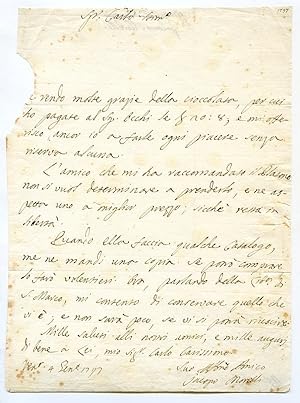 Sigr. Carlo Armo
1797
Le rendo molte grazie della cioccolata, per cui
ho pagate al Sigr. Occhi le £ 20: 8; e mi offe-
risco ancor io a farle ogni piacere senza
riserva alcuna.
L'amico che mi ha raccomandato il
non si vuol determinare a prenderlo, e ne as-
petta uno a miglior prezzo; sicchè resta in
libertà.
Quando ella faccia qualche Catalogo,
me ne mandi una copia. Se potrò comprare
lo farò volentieri. Ora, parlando della
S. Marco, mi contento di conservare quello che
vi è; e non sarà poco, se vi si potrà riuscire.
Mille saluti alli nostri amici, e mille auguri
di bene a Lei, mio Sigr. Carlo Carissimo.
Ven. 4 Gen. 1797
Suo Affmo Amico
Jacopo Morelli